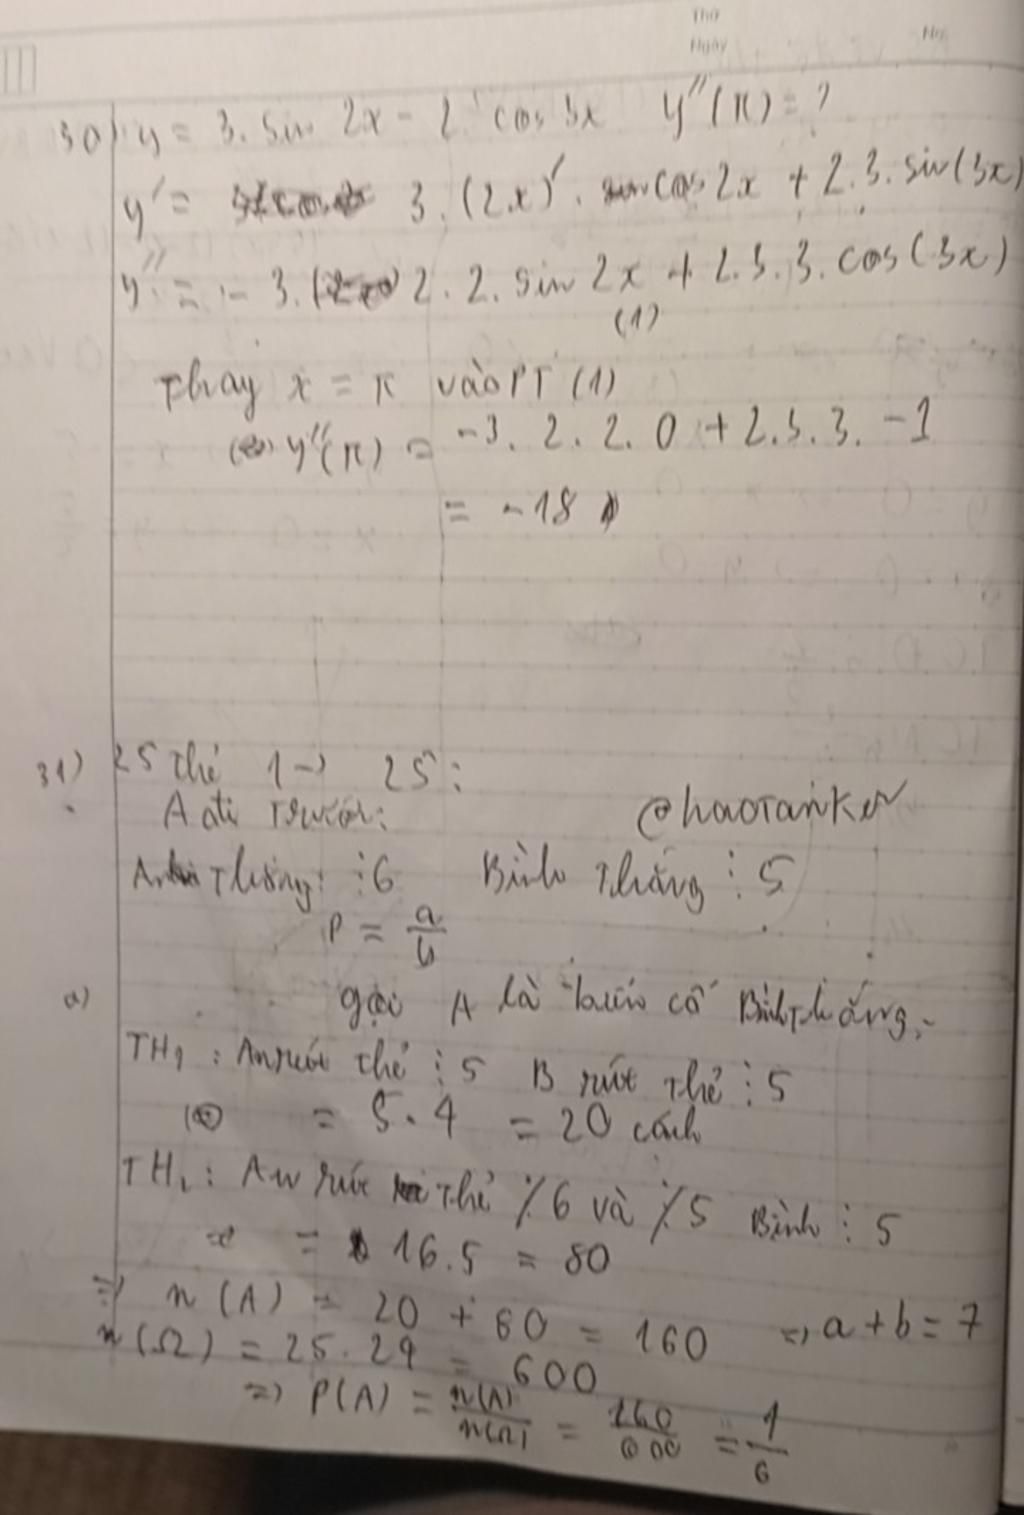 Thứ
Ngày No.
30) y = 3. sin 2x - 2 cos 3x y''(π) = ?
y' = 3. (2x)'. cos 2x + 2.3. sin(3x)
y'' = - 3. 2. 2. sin 2x + 2.3.3. cos(3x)
(1)
Thay x = π vào PT (1)
y''(π) = -3. 2. 2. 0 + 2.3.3. -1
= -18
31) 25 thẻ 1 → 25:
A đi trước:
Thắng: ⋮6 Bình Thắng ⋮ 5
@haoTanker
P = a/b
a) gọi A là biến cố Bình thắng
TH1 : An rút thẻ ⋮ 5 B rút thẻ ⋮ 5
= 5.4 = 20 cách
TH2 : An rút thẻ ⋮̸ 6 và ⋮̸ 5 Bình ⋮ 5
= 16.5 = 80
=> n(A) = 20 + 80 = 160 => a + b = 7
n(Ω) = 25.24 = 600
=> P(A) = n(A)/n(Ω) = 160/600 = 1/6